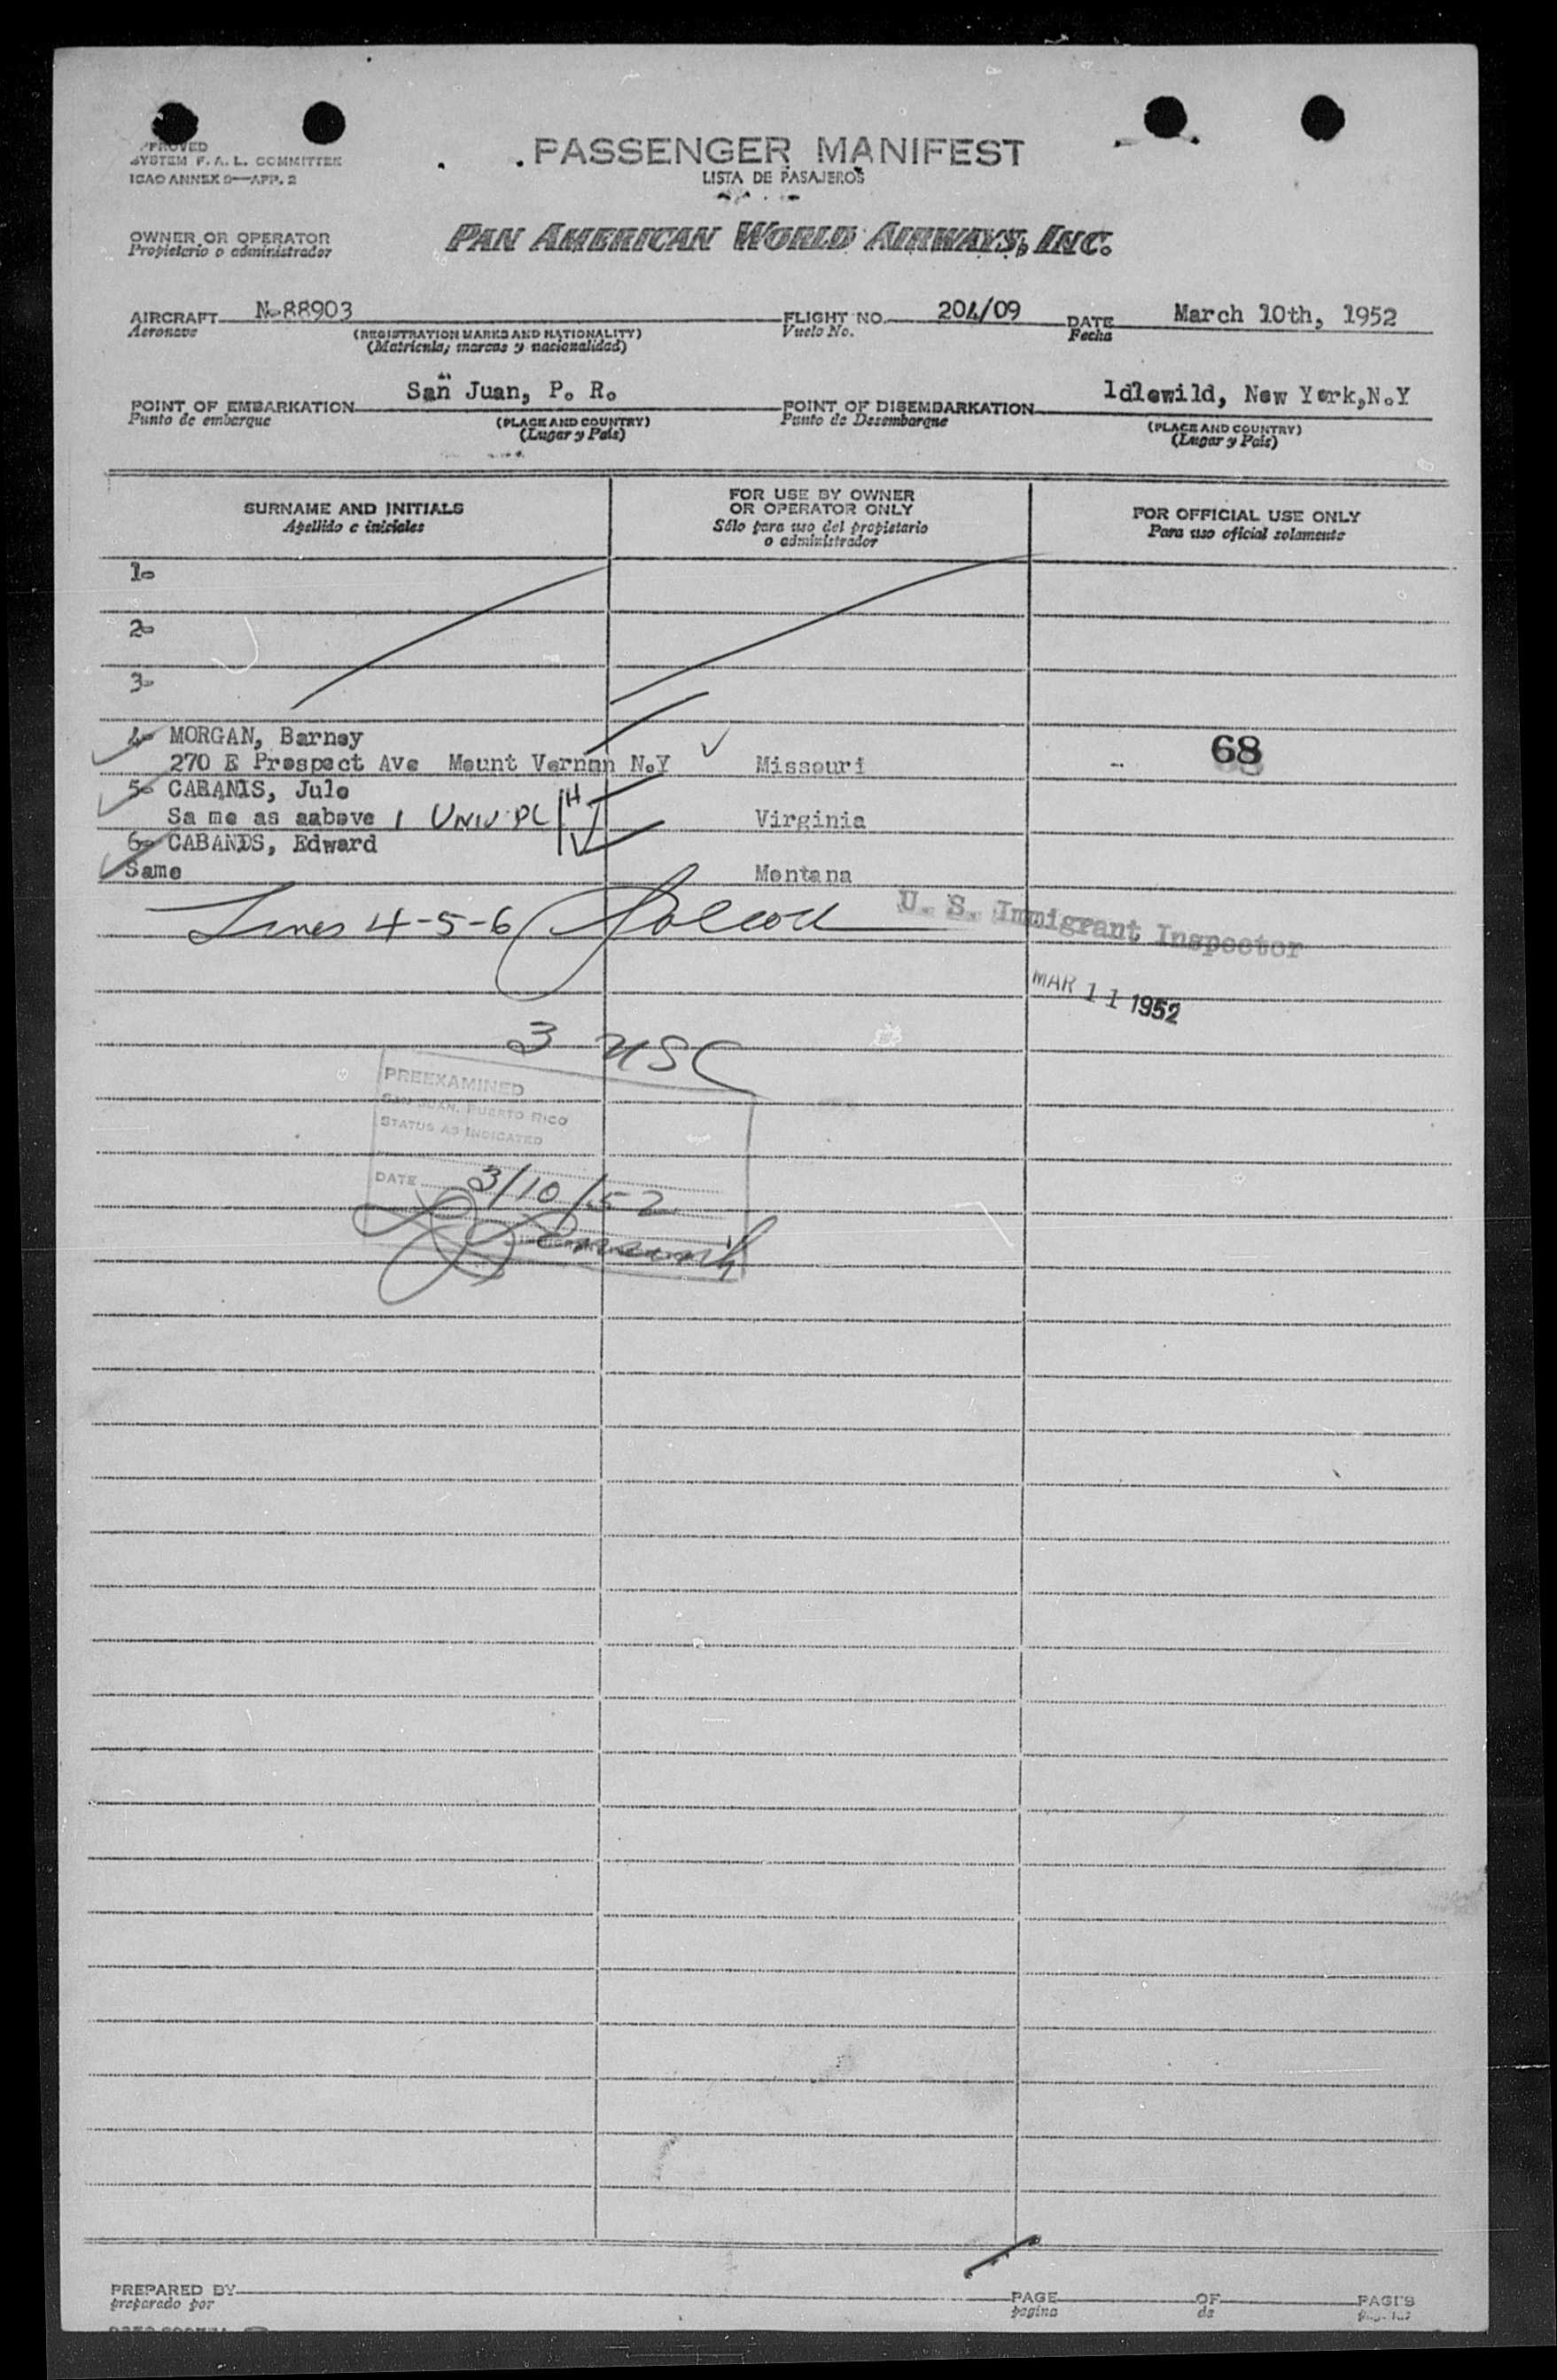 APPROVED
SYSTEM F. A. L. COMMITTEE
ICAO ANNEX 9—APP. 2
PASSENGER MANIFEST
LISTA DE PASAJEROS
OWNER OR OPERATOR
Propietario o administrador
PAN AMERICAN WORLD AIRWAYS, INC.
AIRCRAFT N-88903 FLIGHT NO. 204/09 DATE March 10th, 1952
Aeronave (REGISTRATION MARKS AND NATIONALITY) Vuelo No. Fecha
(Matricula; marcas y nacionalidad)
POINT OF EMBARKATION San Juan, P. R. POINT OF DISEMBARKATION Idlewild, New York,N.Y
Punto de embarque (PLACE AND COUNTRY) Punto de Desembarque (PLACE AND COUNTRY)
(Lugar y Pais) (Lugar y Pais)
SURNAME AND INITIALS
Apellido e iniciales
FOR USE BY OWNER
OR OPERATOR ONLY
Sólo para uso del propietario
o administrador
FOR OFFICIAL USE ONLY
Para uso oficial solamente
1-
2-
3-
4- MORGAN, Barney
270 E Prospect Ave Mount Vernon N.Y Missouri 68
5- CABANIS, Jule
Sa me as aabove 1 UNIV PL H Virginia
6- CABANIS, Edward
Same Montana
Lines 4-5-6
U. S. Immigrant Inspector
MAR 11 1952
3 USC
PREEXAMINED
SAN JUAN, PUERTO RICO
STATUS AS INDICATED
DATE 3/10/52
PREPARED BY PAGE OF PAGES
preparado por pagina de